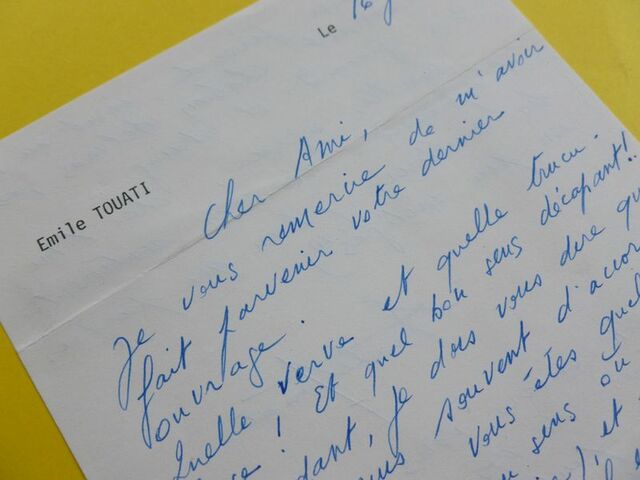 Le 16
Emile TOUATI
Cher Ami,
Je vous remercie de m'avoir
fait parvenir votre dernier
ouvrage.
Quelle verve et quelle trucu-
! Et quel bon sens décapant!
dant, je dois vous dire qu
souvent d'accor
vous êtes quel
sens où
et